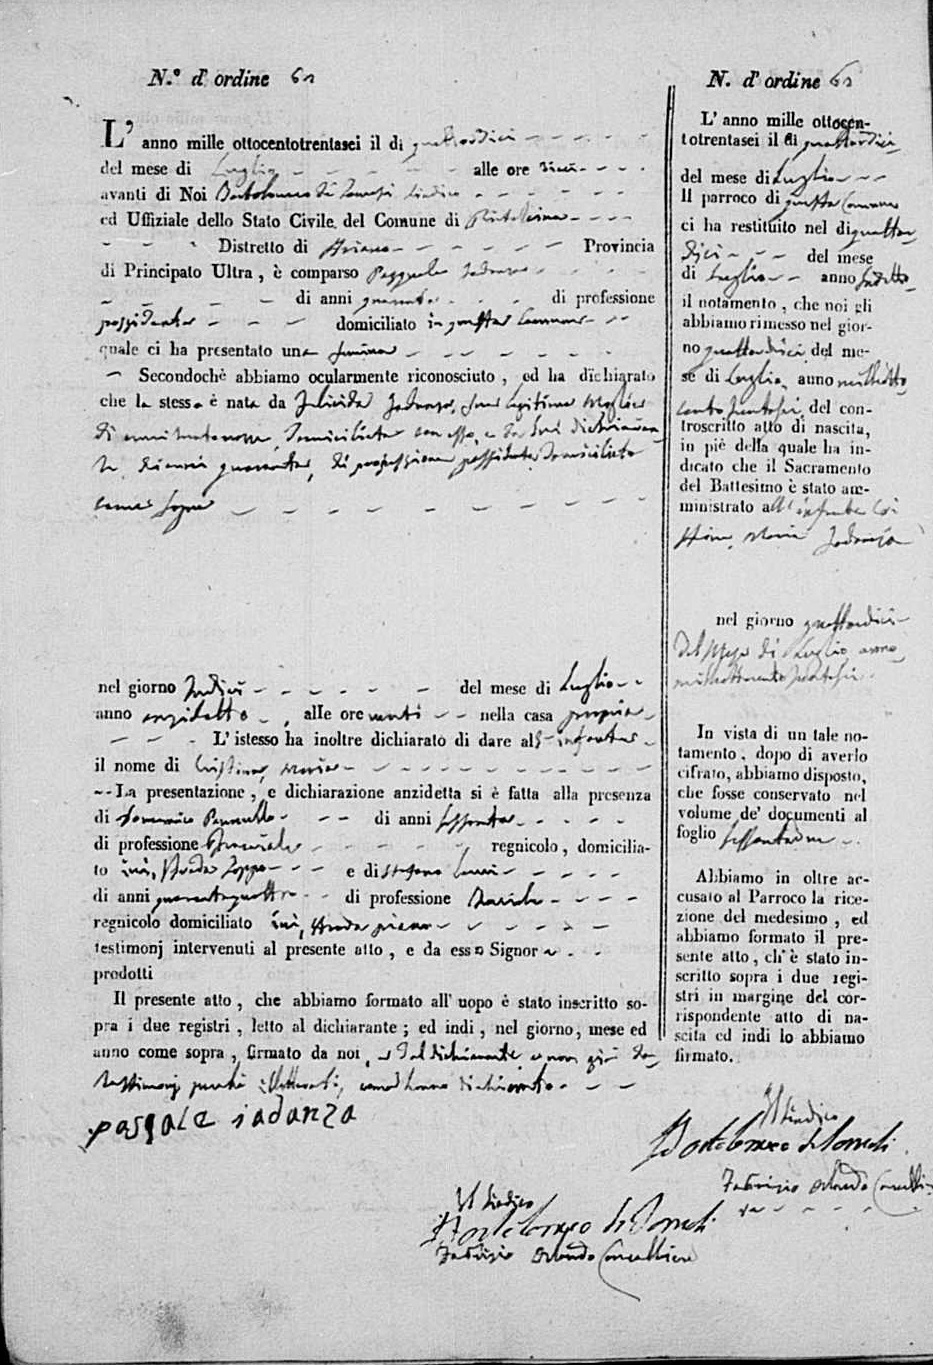 N.º d' ordine 61
L' anno mille ottocentotrentasei il di quattordici
del mese di Luglio alle ore dieci
avanti di Noi Bartolomeo di Sindaco
ed Uffiziale dello Stato Civile del Comune di
Distretto di Ariano Provincia
di Principato Ultra, è comparso Pasquale Iadanza
di anni quaranta di professione
possidente domiciliato in questo Comune
quale ci ha presentato una femina
Secondochè abbiamo ocularmente riconosciuto, ed ha dichiarato
che la stessa è nata da Iadanza, sua legittima moglie
di anni domiciliata con esso, e da lui dichiaran-
te di anni quaranta, di professione possidente domiciliato
come sopra
nel giorno tredici del mese di Luglio
anno anzidetto, alle ore venti nella casa propria
L' istesso ha inoltre dichiarato di dare all' infanta
il nome di Cristina, Maria
La presentazione, e dichiarazione anzidetta si è fatta alla presenza
di Domenico di anni sessanta
di professione Bracciale regnicolo, domicilia-
to ivi, strada e di Stefano
di anni quarantaquattro di professione
regnicolo domiciliato ivi, strada piano
testimonj intervenuti al presente atto, e da esso Signor
prodotti
Il presente atto, che abbiamo formato all' uopo è stato inscritto so-
pra i due registri, letto al dichiarante; ed indi, nel giorno, mese ed
anno come sopra, firmato da noi, e dal dichiarante e non già da
testimonj perchè illetterati, come hanno dichiarato
pasqale iadanza
Il Sindaco
Bartolomeo di
Fabrizio Orlando Cancelliere
N. d' ordine 61
L' anno mille ottocen-
totrentasei il di quattordici
del mese di Luglio
Il parroco di questo Comune
ci ha restituito nel di quattor-
dici del mese
di Luglio anno sudetto
il notamento, che noi gli
abbiamo rimesso nel gior-
no quattordici del me-
se di Luglio, anno milleotto
cento trentasei del con-
troscritto atto di nascita,
in piè della quale ha in-
dicato che il Sacramento
del Battesimo è stato am-
ministrato all' infanta Cri
stina, Maria Iadanza
nel giorno quattordici
del mese di Luglio anno
milleottocento trentasei
In vista di un tale no-
tamento, dopo di averlo
cifrato, abbiamo disposto,
che fosse conservato nel
volume de' documenti al
foglio sessantuno
Abbiamo in oltre ac-
cusato al Parroco la rice-
zione del medesimo, ed
abbiamo formato il pre-
sente atto, ch' è stato in-
scritto sopra i due regi-
stri in margine del cor-
rispondente atto di na-
scita ed indi lo abbiamo
firmato.
Il Sindaco
Bartolomeo di
Fabrizio Orlando Cancelliere